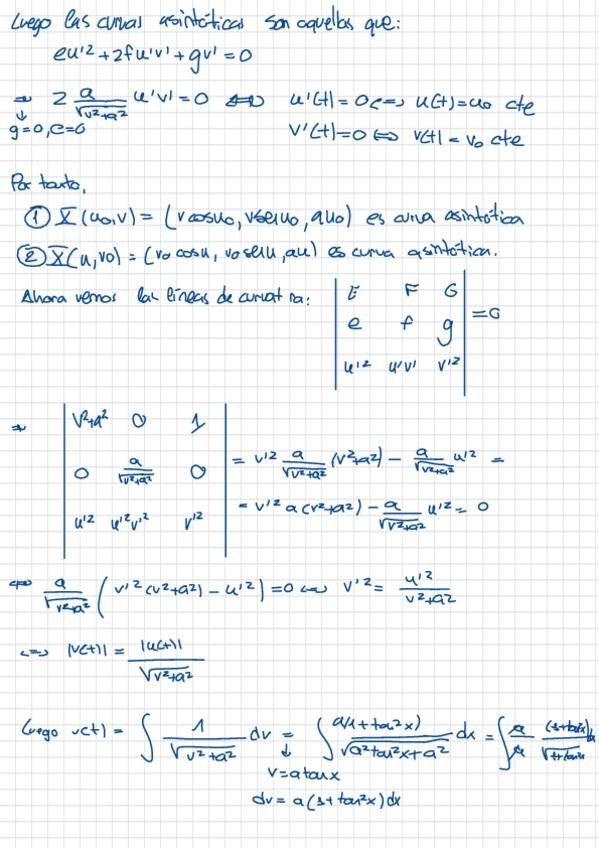 Luego las curvas asintóticas son aquellas que:
eu'² + 2fu'v' + gv' = 0
⇒ 2 a/√(v²+a²) u'v' = 0 ⇔ u'(t) = 0 ⇔ u(t) = u₀ cte
↓
g=0, e=0 v'(t) = 0 ⇔ v(t) = v₀ cte
Por tanto,
① X(u₀,v) = (v cosu₀, v senu₀, au₀) es curva asintótica
② X(u,v₀) = (v₀ cosu, v₀ senu, au) es curva asintótica.
Ahora vemos las líneas de curvatura: | E F G |
| e f g | = 0
| u'² u'v' v'² |
⇒ | v²+a² 0 1 |
| 0 a/√(v²+a²) 0 | = v'² a/√(v²+a²) (v²+a²) − a/√(v²+a²) u'² =
| u'² u'²v'² v'² | = v'² a(v²+a²) − a/√(v²+a²) u'² = 0
⇔ a/√(v²+a²) ( v'²(v²+a²) − u'² ) = 0 ⇔ v'² = u'²/(v²+a²)
⇔ |v(t)| = |u(t)|/√(v²+a²)
Luego v(t) = ∫ 1/√(v²+a²) dv = ∫ a(1+tan²x)/√(a²tan²x+a²) dx = ∫ a/a (1+tan²x)/√(1+tan²x) dx
↓
v = a tanx
dv = a(1+tan²x)dx